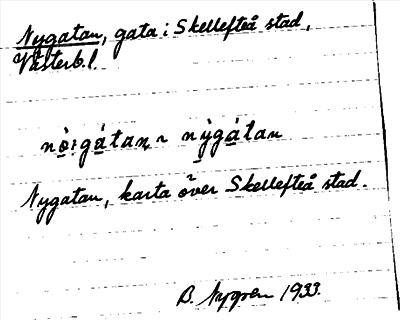 Nygatan, gata i Skellefteå stad,
Västerb.l.
nò:gátan ~ nỳgátan
Nygatan, karta över Skellefteå stad.
B. Nygren 1933.